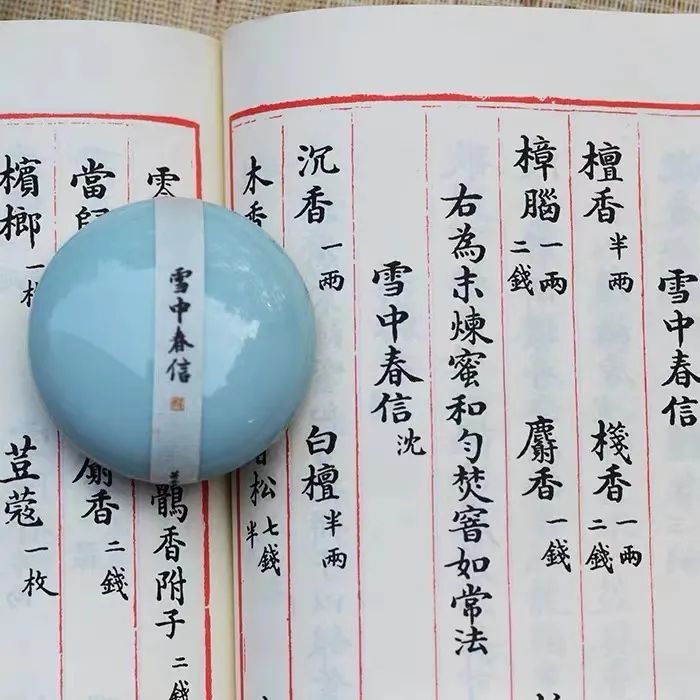 雪中春信
檀香半兩 棧香一兩二錢
樟腦一兩二錢 麝香一錢
右為末煉蜜和勻焚窨如常法
雪中春信 沈
沉香一兩 白檀半兩
木香 松七錢半
鶻香附子二錢
當 香二錢
檳榔一 荳蔻一枚
雪中春信